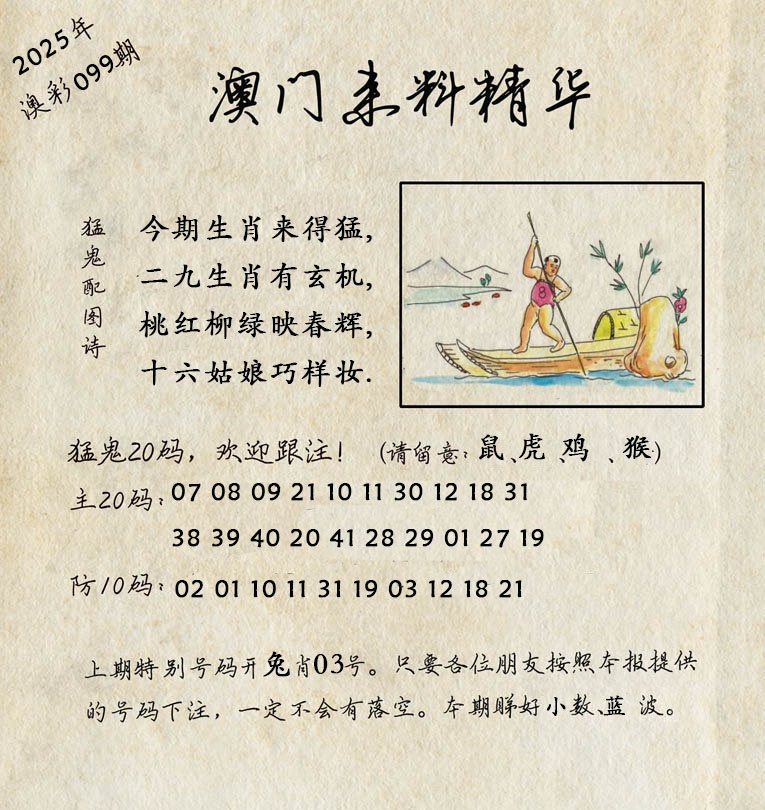 2025年
澳彩099期
澳门来料精华
猛鬼配图诗
今期生肖来得猛,
二九生肖有玄机,
桃红柳绿映春辉,
十六姑娘巧样妆.
8
猛鬼20码，欢迎跟注！（请留意：鼠、虎、鸡、猴）
主20码：07 08 09 21 10 11 30 12 18 31
38 39 40 20 41 28 29 01 27 19
防10码：02 01 10 11 31 19 03 12 18 21
上期特别号码开兔肖03号。只要各位朋友按照本报提供
的号码下注，一定不会有落空。本期睇好小数、蓝 波。